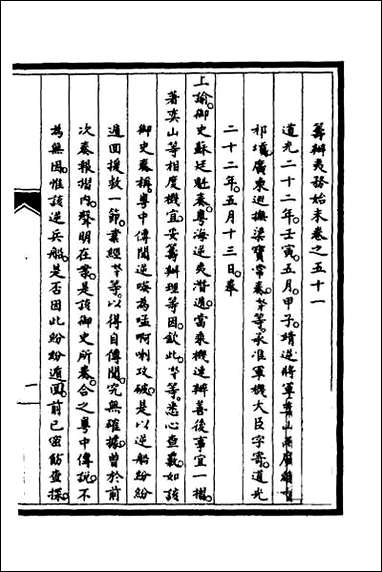 籌辦夷務始末卷之五十一
道光二十二年壬寅五月甲子靖逆將軍奕山兩廣總督
祁𡎴廣東巡撫梁寶常奏奴才等承准軍機大臣字寄道光
二十二年五月十三日奉
上諭御史蘇廷魁奏粵海逆夷潛遁當乘機速辦善後事宜一摺
著奕山等相度機宜妥籌辦理等因欽此奴才等悉心查覈如該
御史奏稱粵中傳聞逆嗨為嗌啊喇攻破是以逆船紛紛
遁回援救一節業經奴才等以得自傳聞究無確據曾於前
次奏報摺內聲明在案是該御史所奏合之粵中傳說不
為無因惟該逆兵船是否因此紛紛遁回前已密飭查探
一